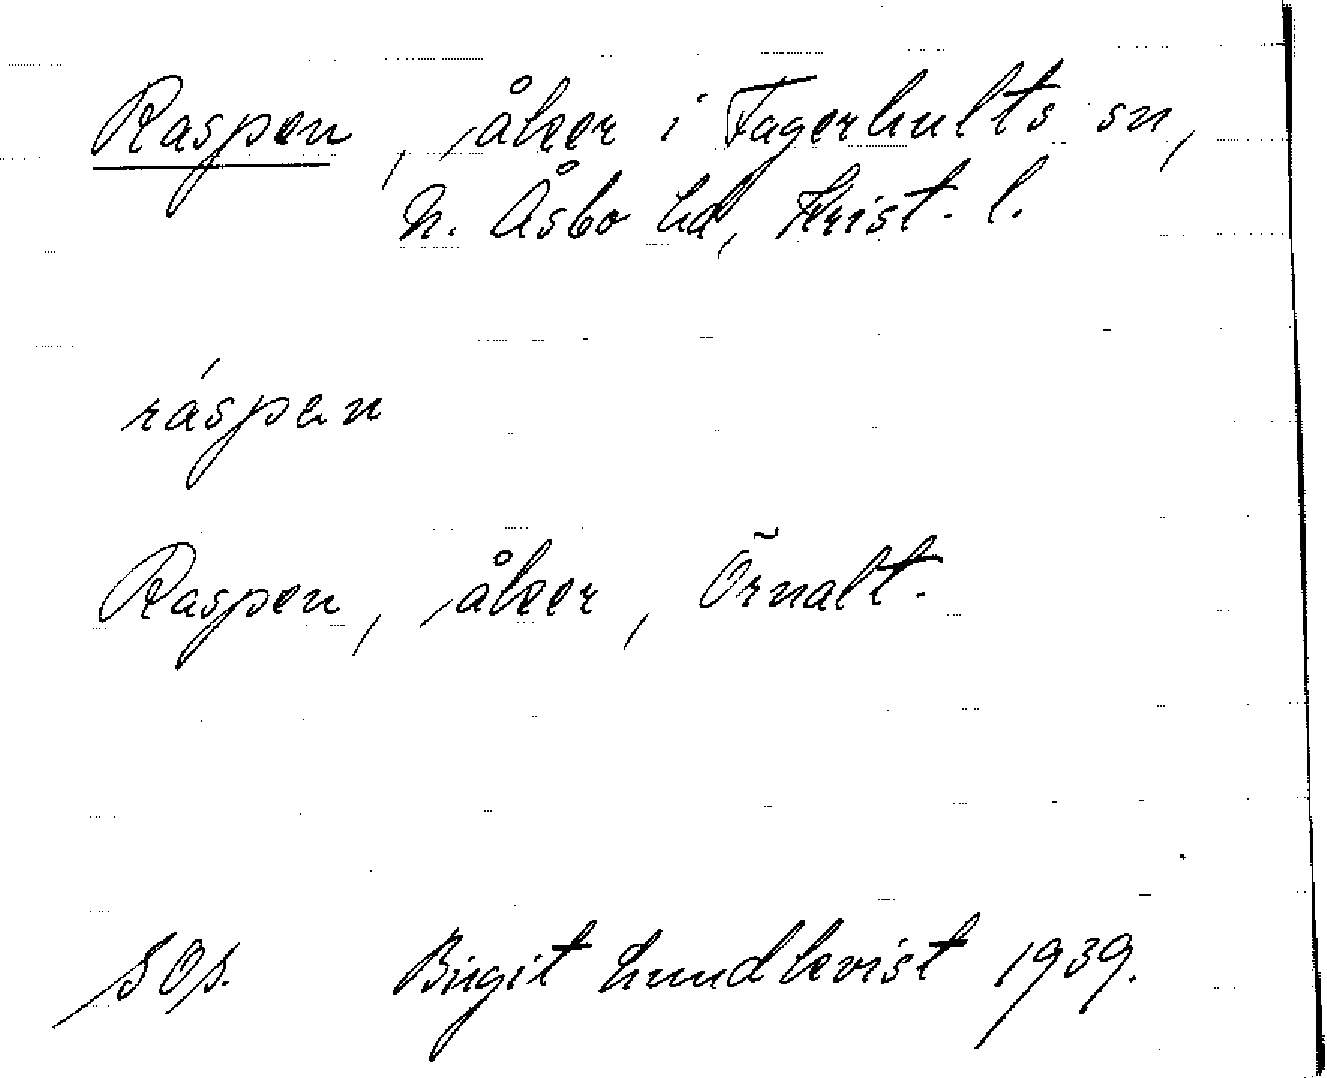 Raspen, åker i Fagerhults sn,
N. Åsbo hd, Krist. l.
ráspan
Raspen, åker, Örnalt.
Birgit Lundkvist 1939.